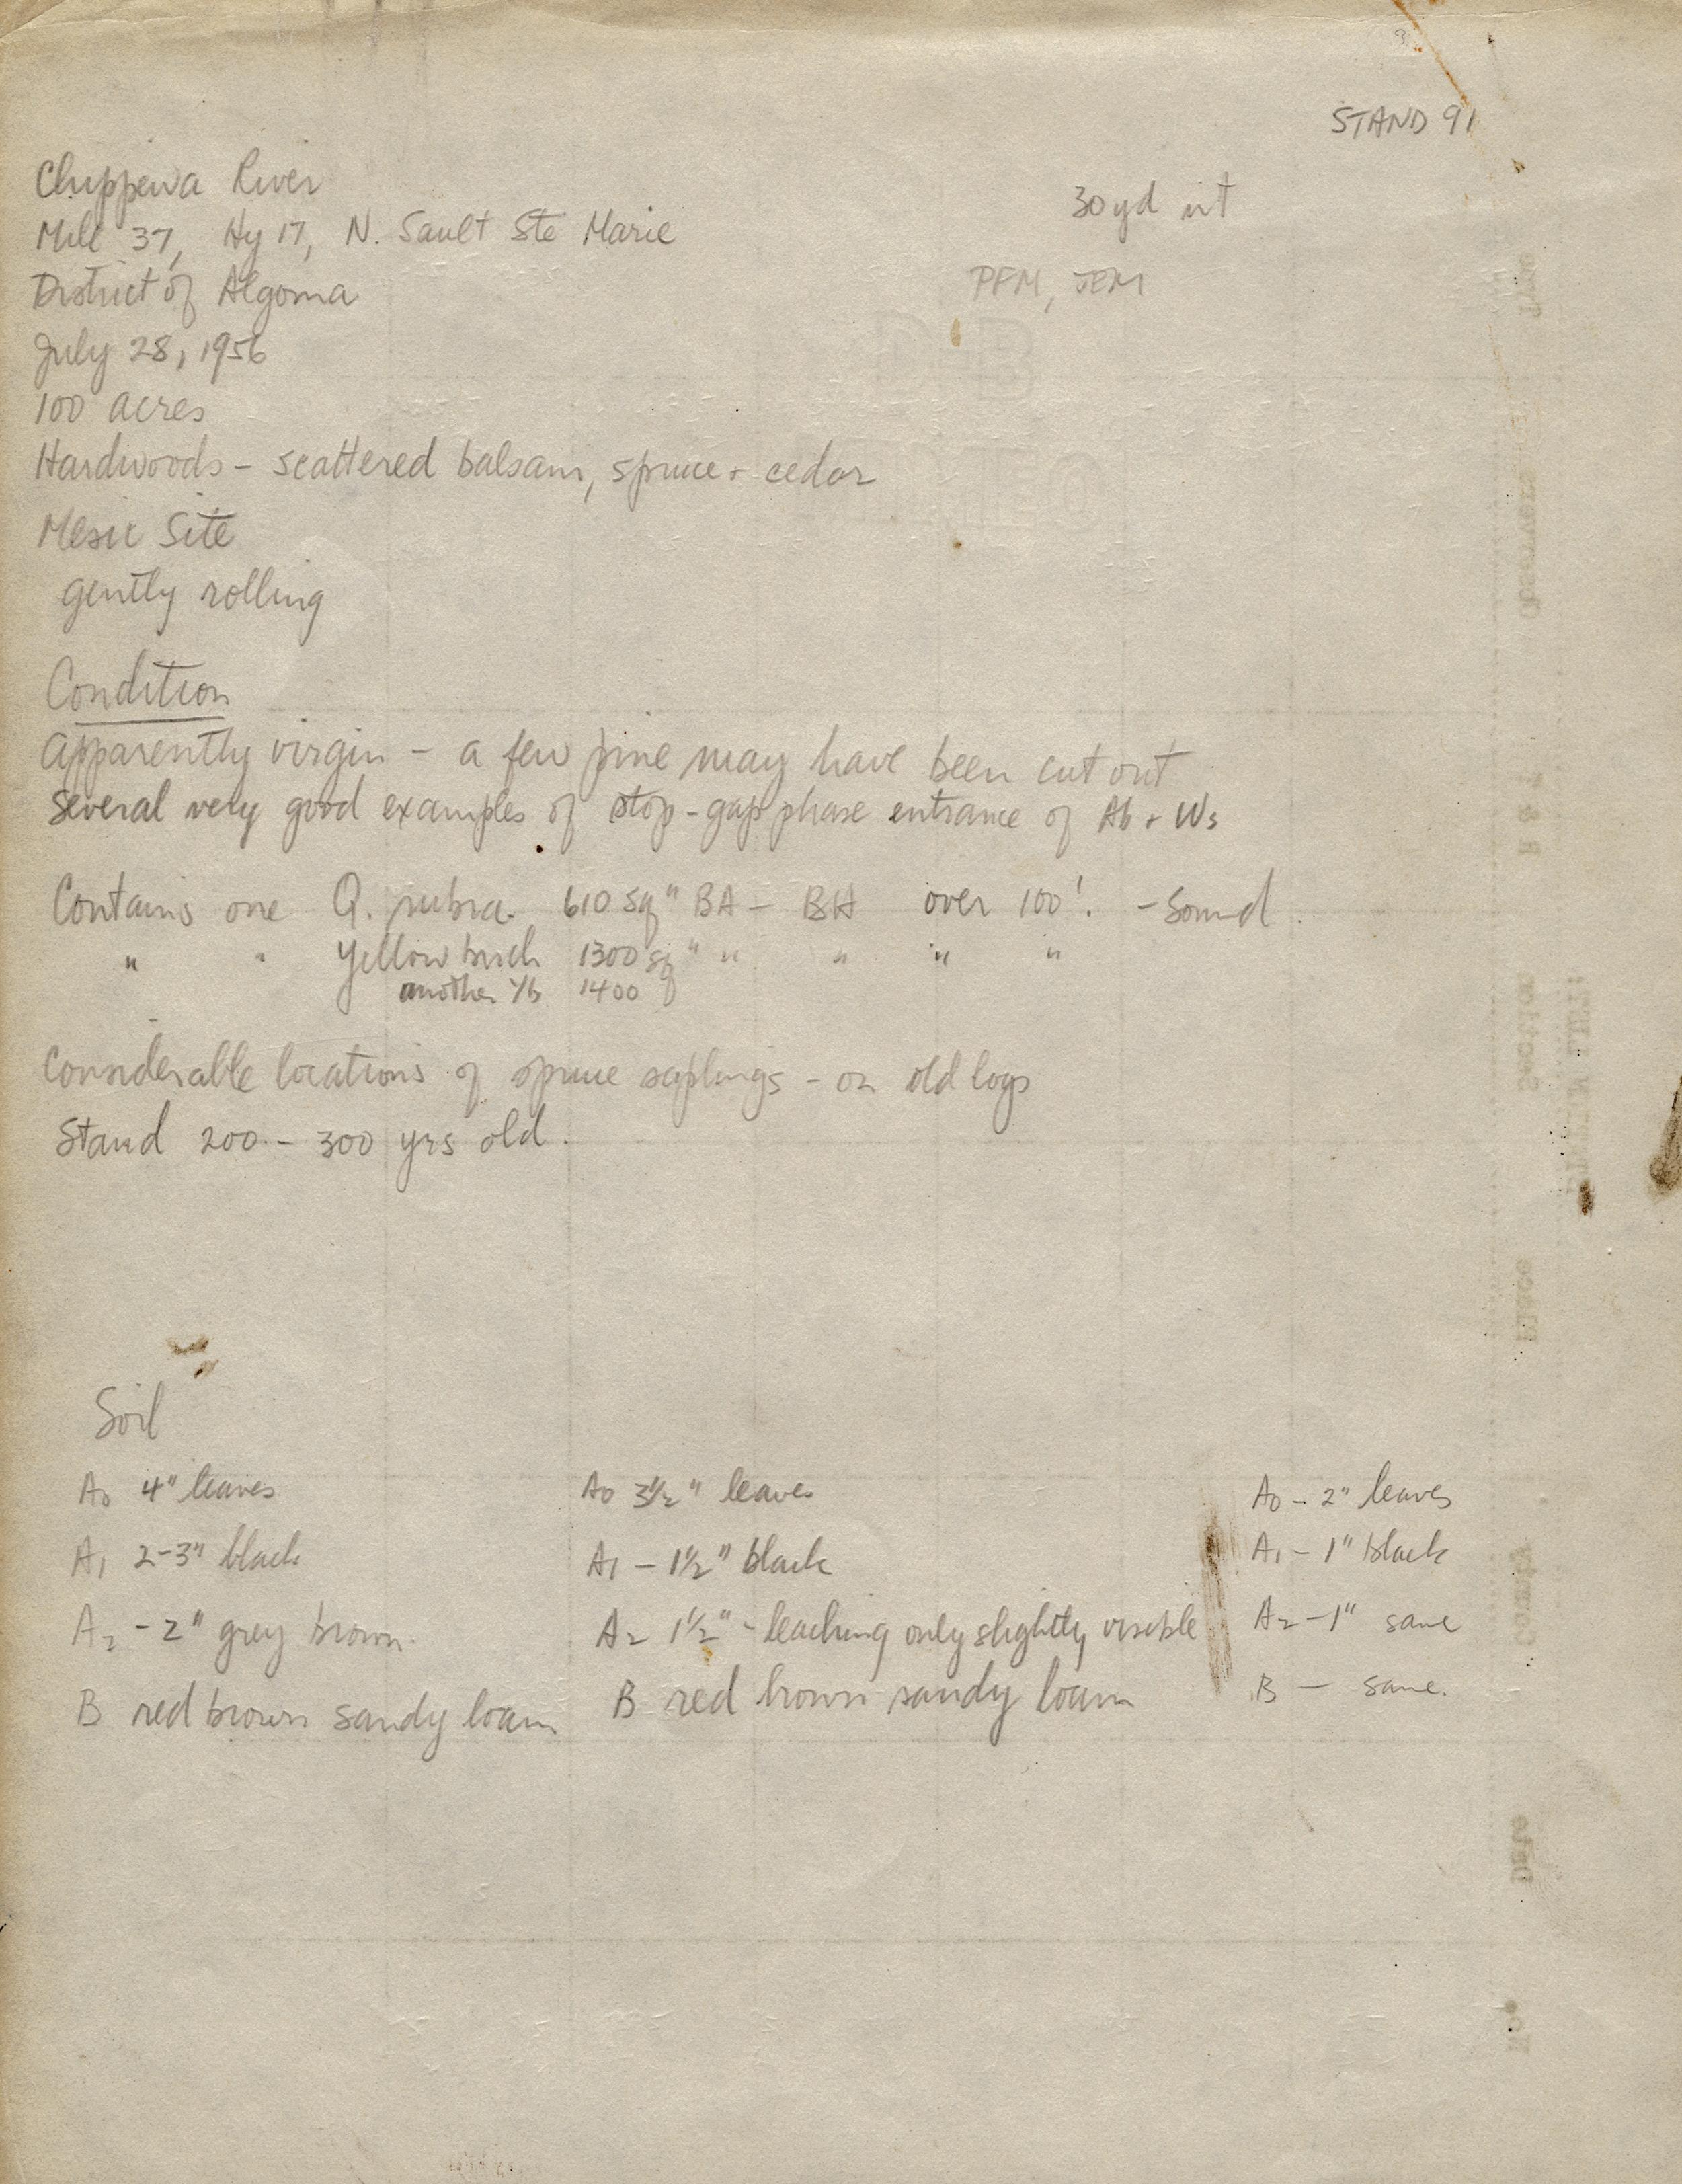 STAND 91
Chippewa River
30 yd int
Mile 37, Hy 17, N. Sault Ste Marie
PFM, JEM
District of Algoma
July 28, 1956
100 acres
Hardwoods - scattered balsam, spruce + cedar
Mesic Site
gently rolling
Condition
Apparently virgin - a few pine may have been cut out
Several very good examples of stop-gap phase entrance of Ab + Ws
Contains one Q. rubra. 610 sq " BA - BH over 100'. - Sound.
" " Yellow birch 1300 sq " " " " "
another Yb 1400
Considerable locations of spruce saplings - on old logs
Stand 200 - 300 yrs old.
Soil
A0 4" leaves
A1 2-3" black
A2 - 2" grey brown.
B red brown sandy loam
A0 3 1/2" leaves
A1 - 1 1/2" black
A2 1 1/2" - leaching only slightly visible
B red brown sandy loam
A0 - 2" leaves
A1 - 1" black
A2 - 1" same
B - same.